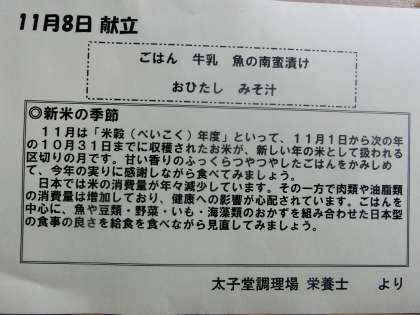 11月8日 献立
ごはん 牛乳 魚の南蛮漬け
おひたし みそ汁
◎新米の季節
　11月は「米穀（べいこく）年度」といって、11月1日から次の年
の10月31日までに収穫されたお米が、新しい年の米として扱われる
区切りの月です。甘い香りのふっくらつやつやしたごはんをかみしめ
て、今年の実りに感謝しながら食べてみましょう。
　日本では米の消費量が年々減少しています。その一方で肉類や油脂類
の消費量は増加しており、健康への影響が心配されています。ごはんを
中心に、魚や豆類・野菜・いも・海藻類のおかずを組み合わせた日本型
の食事の良さを給食を食べながら見直してみましょう。
太子堂調理場 栄養士 より